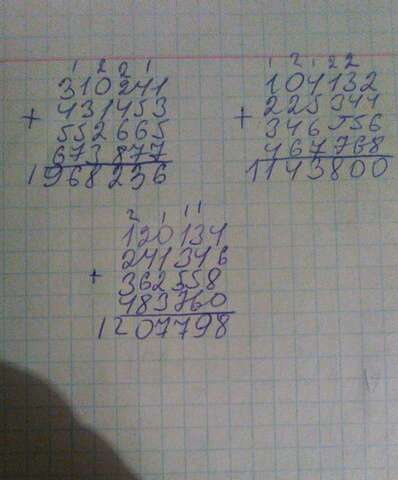 1 2 2 1
310241
+
431453
552665
673877
1968236
1 2 1 2 2
104132
+
225344
346556
467768
1143800
2 1 1 1
120134
241346
+
362558
483760
1207798